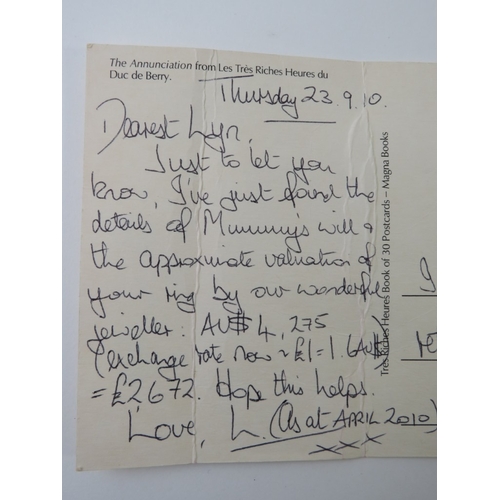 The Annunciation from Les Très Riches Heures du
Duc de Berry.
Thursday 23.9.10.
Dearest Lyn,
Just to let you
know, I've just found the
details of Mummy's will &
the approximate valuation of
your ring by our wonderful
jeweller: AU$ 4,275
(exchange rate now ~ £1=1.6AU$)
= £2672. Hope this helps.
Love, L. (As at APRIL 2010)
xxx
Très Riches Heures Book of 30 Postcards – Magna Books